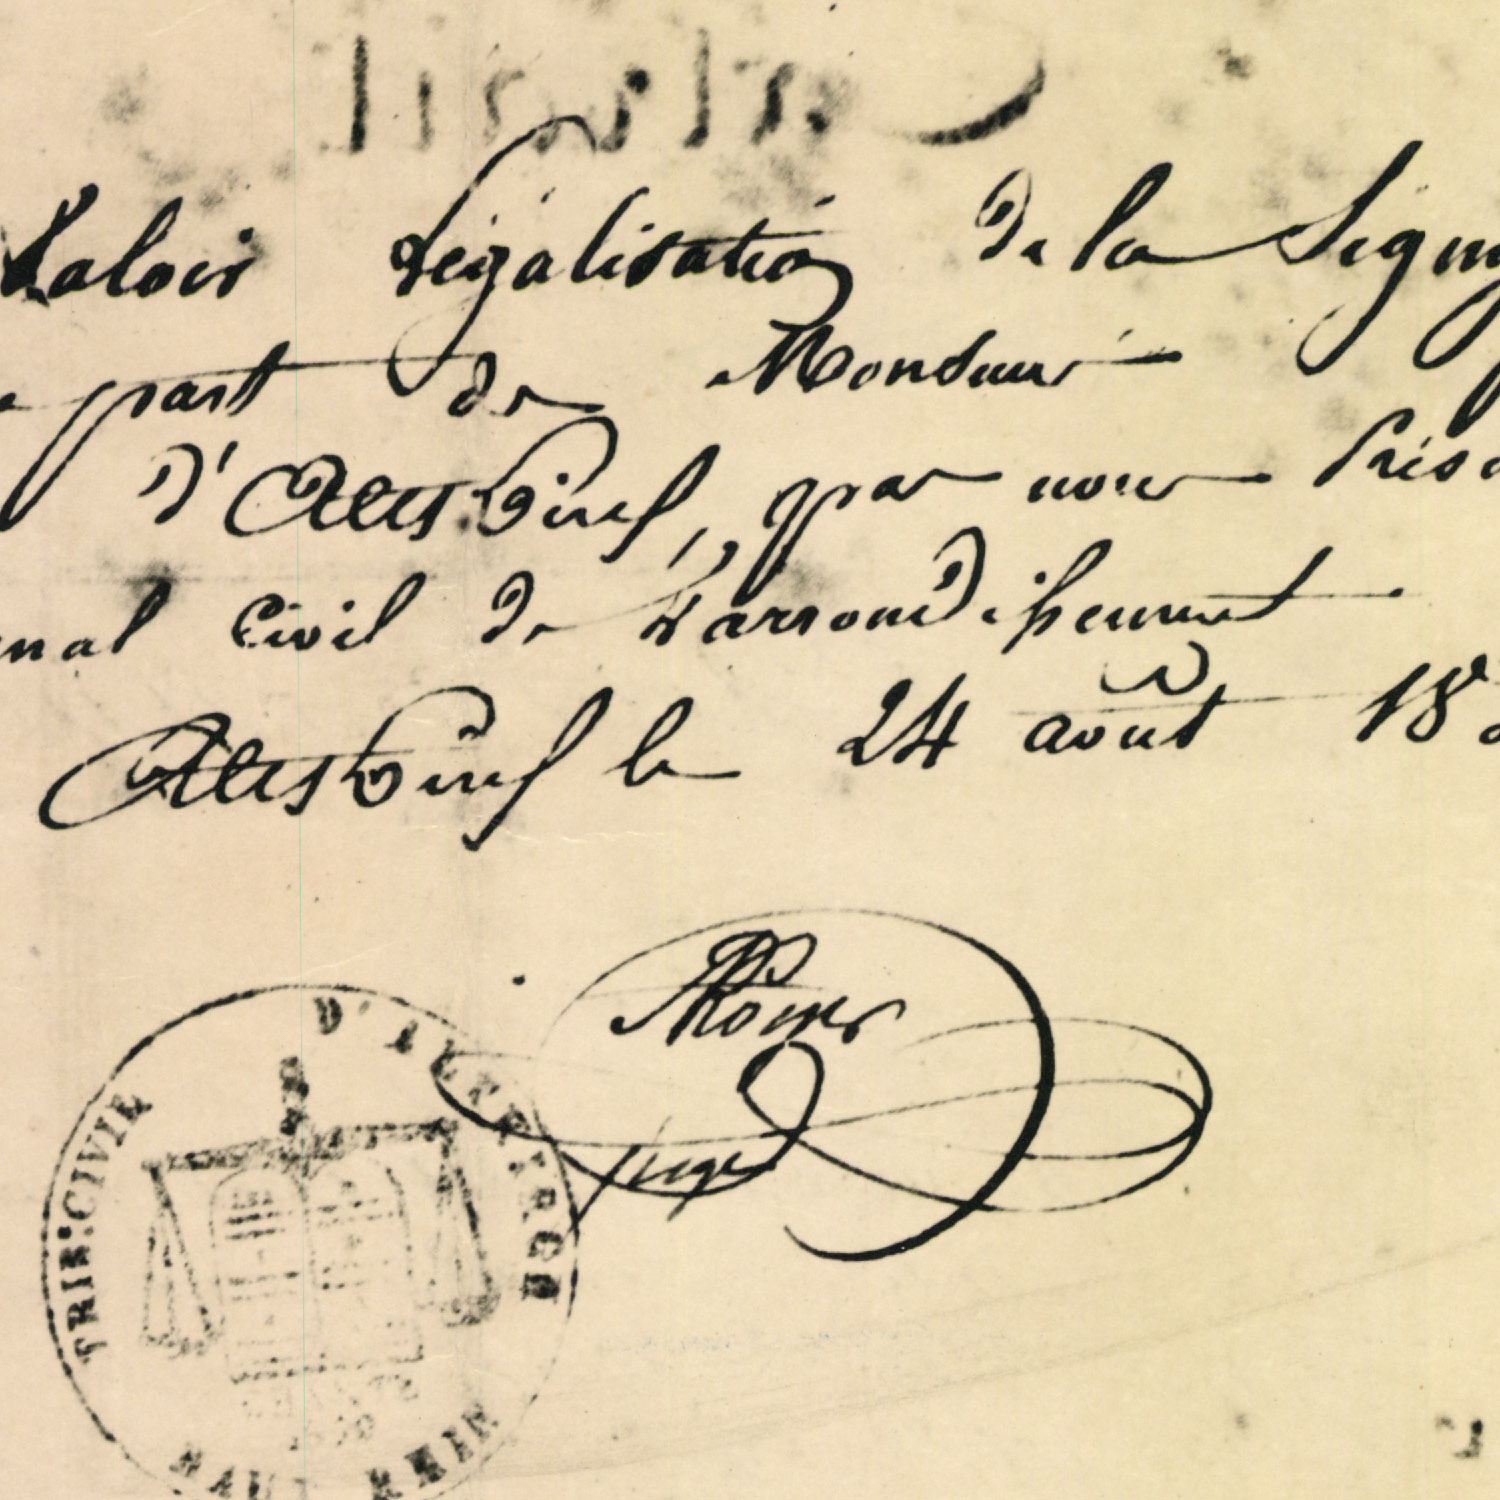 Valoir légalisation de la Sign
part de Monsieur
D'Altkirch, par nous Présid
nal Civil de l'arrondissement
Altkirch le 24 août 18
juge
TRIB. CIVIL D'ALTKIRCH
HAUT RHIN